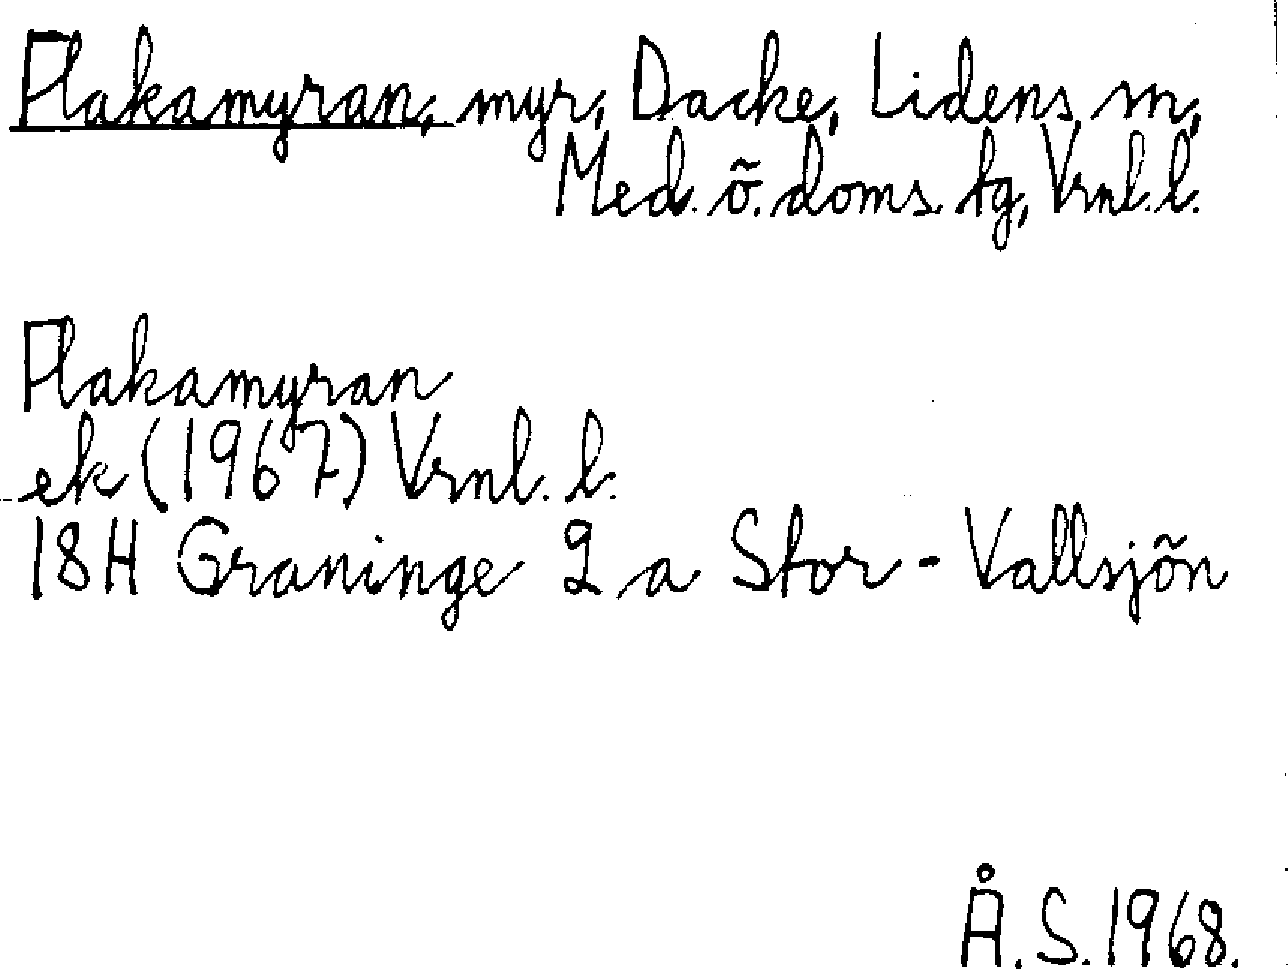 Flakamyran, myr, Dacke, Lidens m,
Med. ö. doms. tg, Vrnl. l.
Flakamyran
ek (1967) Vrnl. l.
18H Graninge 2 a Stor-Vallsjön
Å.S. 1968.